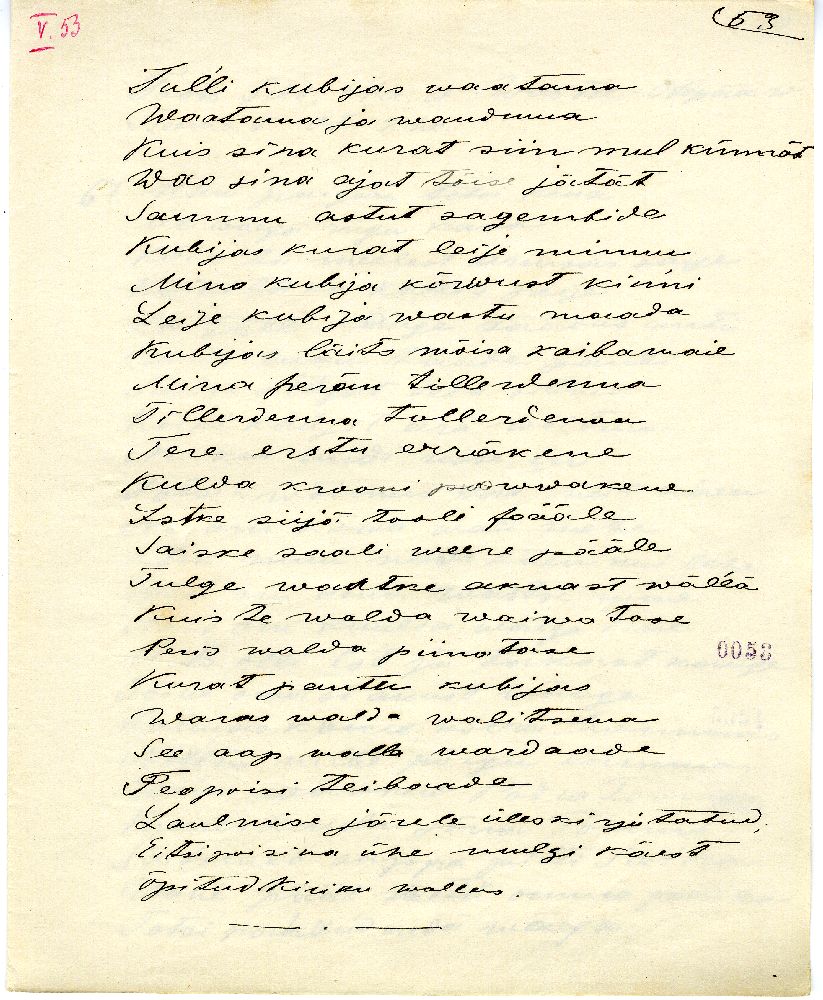 V. 53
53
Tulli kubijas waatama
Waatama ja wandma
Kuis sina kurat siin mul künnät
Wao sina ajat tõise jätät
Sammu astut sagembide
Kubijas kurat leije minnu
Mina kubija kõrwust kinni
Leije kubija wastu maada
Kubijas läits mõisa kaibamaie
Mina perän tillerdenna
Tillerdenna tollerdenna
Tere erstu erräkene
Kulda krooni prowwakene
Istke siijä tooli pääle
Saiske saali weere pääle
Tulge waatke aknast wällä
Kuis Te walda waiwatase
Peris walda piinatase
Kurat pantu kubijas
Waras walda walitsema
See aap walla wardaade
Teopoisi teibaade
Laulmise järele ülleskirjutatud,
Eitsipoisina ühe mulgi käest
õpitud Kiriku wallas.
0053